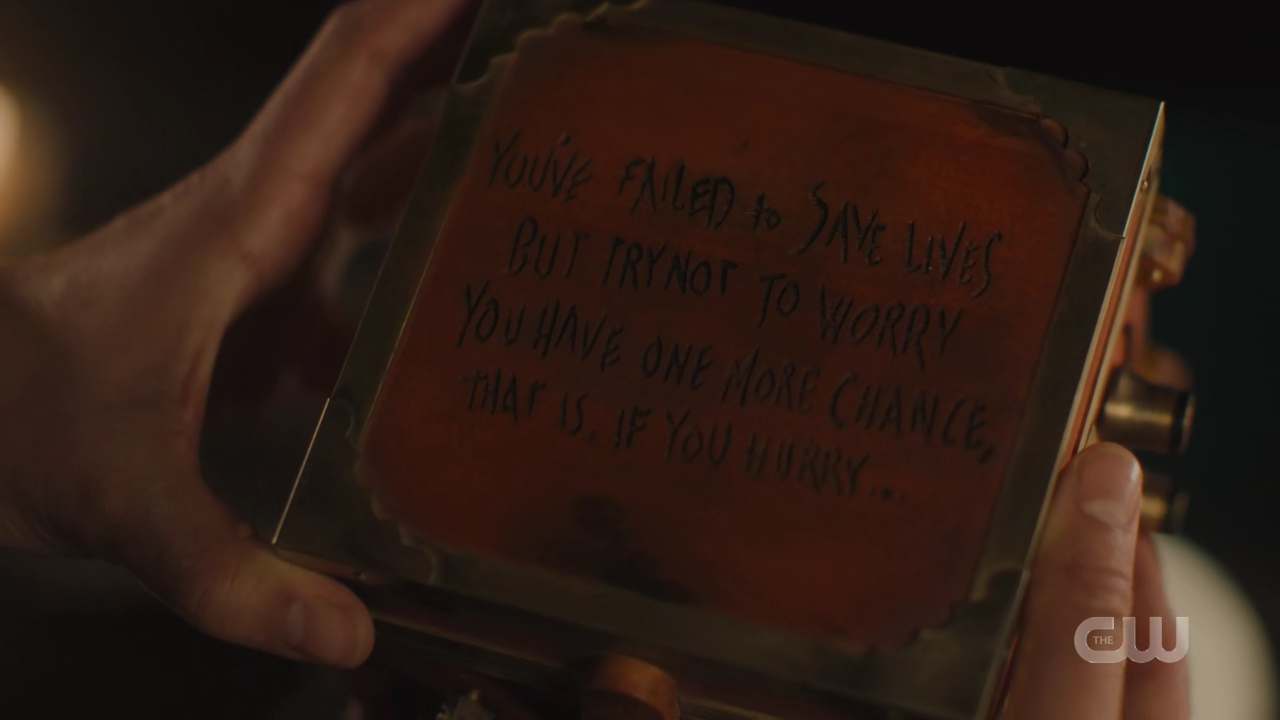 YOU'VE FAILED to SAVE LIVES
BUT TRY NOT TO WORRY
YOU HAVE ONE MORE CHANCE,
THAT IS, IF YOU HURRY...
THE CW